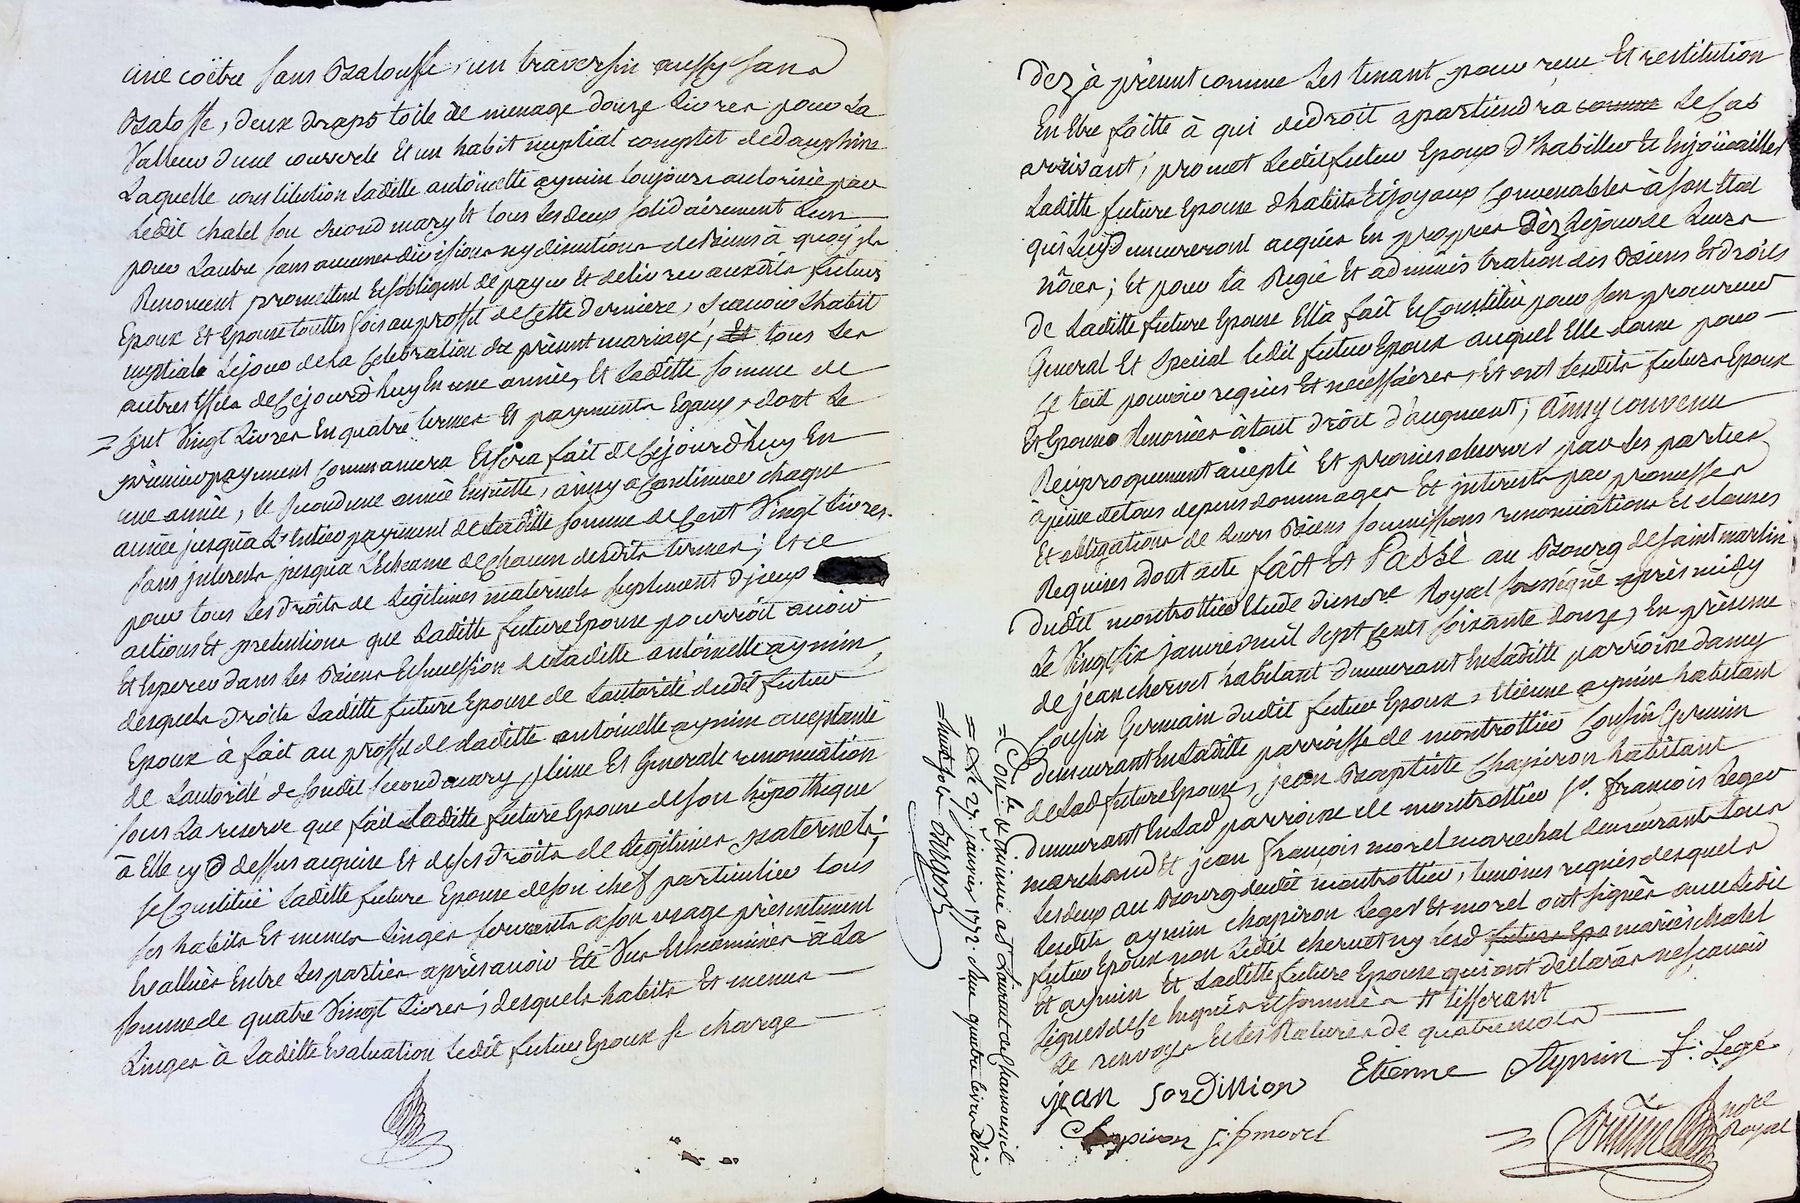 une coëtre sans Balouffe, un traversin aussy sans
Baloffe, deux draps toile de menage douze Livres pour La
Valleur d'une couverte Et un habit nuptial complet de dauphine
Laquelle constitution Laditte antoinette aymin toujours autorisée par
Ledit chatel son second mary Et tous Lesdeux solidairement Lun
pour Lautre sans aucunes divisions ny disentions de Biens à quoy ils
Renoncent promettent Es'obligent de payer Et delivrer auxdits futurs
Epoux Et Epouse touttes fois au proffit de Cette derniere, scavoir Lhabit
nuptiale Lejour dela Celebration du présent mariage, Et tous Les
autres Effets de Cejourd'huy En une année, Et Laditte somme de
= Cent Vingt Livres En quatre termes Et payments Egaux, dont Le
premier payment Commancera Et sera fait de Cejourd'huy En
une année, le second une année Ensuitte, ainsy a Continuer chaque
année jusqu'a L'Entier payment de Laditte somme de Cent Vingt Livres
sans interests jusqu'a L'Echeance de Chacun desdits termes; Et ce
pour tous Lesdroits de Legitimes maternels suplement d'iceux
actions Et pretentions que Laditte future Epouse pourroit avoir
Et Esperer dans Les Biens Et succession de Laditte antoinette aymin,
desquels droits Laditte future Epouse de Lautorité dudit futur
Epoux à fait au proffit de Laditte antoinette aymin acceptante
de Lautorité de sondit second mary pleine Et Generale renonciation
sous La reserve que fait Laditte future Epouse deson hipotheque
à Elle cy dessus acquise Et deses droits de Legitimes paternels;
se Constitüe Laditte future Epouse deson chef particulier tous
ses habits Et menus Linges servants a son usage présentement
Evallués Entre Les parties après avoir Eté Vus Et Examinés à La
somme de quatre Vingt Livres; desquels habits Et menus
Linges à Laditte Evaluation Ledit futur Epoux se charge
dez à présent comme Les tenant, pour reçu Et restitution
En Etre faitte à qui de droit apartiendra comme Le Cas
arrivant; promet Ledit futur Epoux d'habiller Et Enjoüailler
Laditte future Epouse d'habits Et joyaux Convenables à son Etat
qui Luy demeureront acquis En propres dèz Lejour de Leurs
nôces; Et pour La Regie Et administration des Biens Et droits
de Laditte future Epouse Ella fait Et Constitüé pour son procureur
General Et special Ledit futur Epoux auquel Elle donne pour
Ce tout pouvoir requis Et necessaires, Et ont Lesdits futurs Epoux
Et Epouse Renoncés à tout droit d'augment; ainsy convenu
Reciproquement accepté Et promis observer par Les parties
a peine de tous depens dommages Et interests par promesses
Et obligations de Leurs Biens soumissions renonciations Et clauses
Requises dont acte fait Et Passé au Bourg de saint martin
dudit montrottier Etude du nore Royal soussigné après midy
Le Vingt six janvier mil sept Cents soixante douze, En présence
de jean chervet habitant demeurant En Laditte parroisse damey
Cousin Germain dudit futur Epoux, Etienne aymin habitant
demeurant En Laditte parroisse de montrottier Cousin Germain
de Lad future Epouse, jean Baptiste Chapiron habitant
demeurant En Lad parroisse de montrottier, sr. françois Leger
marchand Et jean françois morel marechal demeurants tous
Lesdeux au Bourg dudit montrottier, temoins requis desquels
Lesdits aymin chapiron Leger Et morel ont signés avec Ledit
futur Epoux non Ledit chervet ny Lesd future Epo mariés chatel
Et aymin Et Laditte future Epouse qui ont déclarés ne sçavoir
signer de Ce Enquis Et sommés
Le renvoys Et Les Ratures de quatre mots
jean sordillion Etienne Aymin f: Legé
Chapiron j: f morel
nore
Royal
= Le 27 janvier 1772. Reçu quatre livres dix